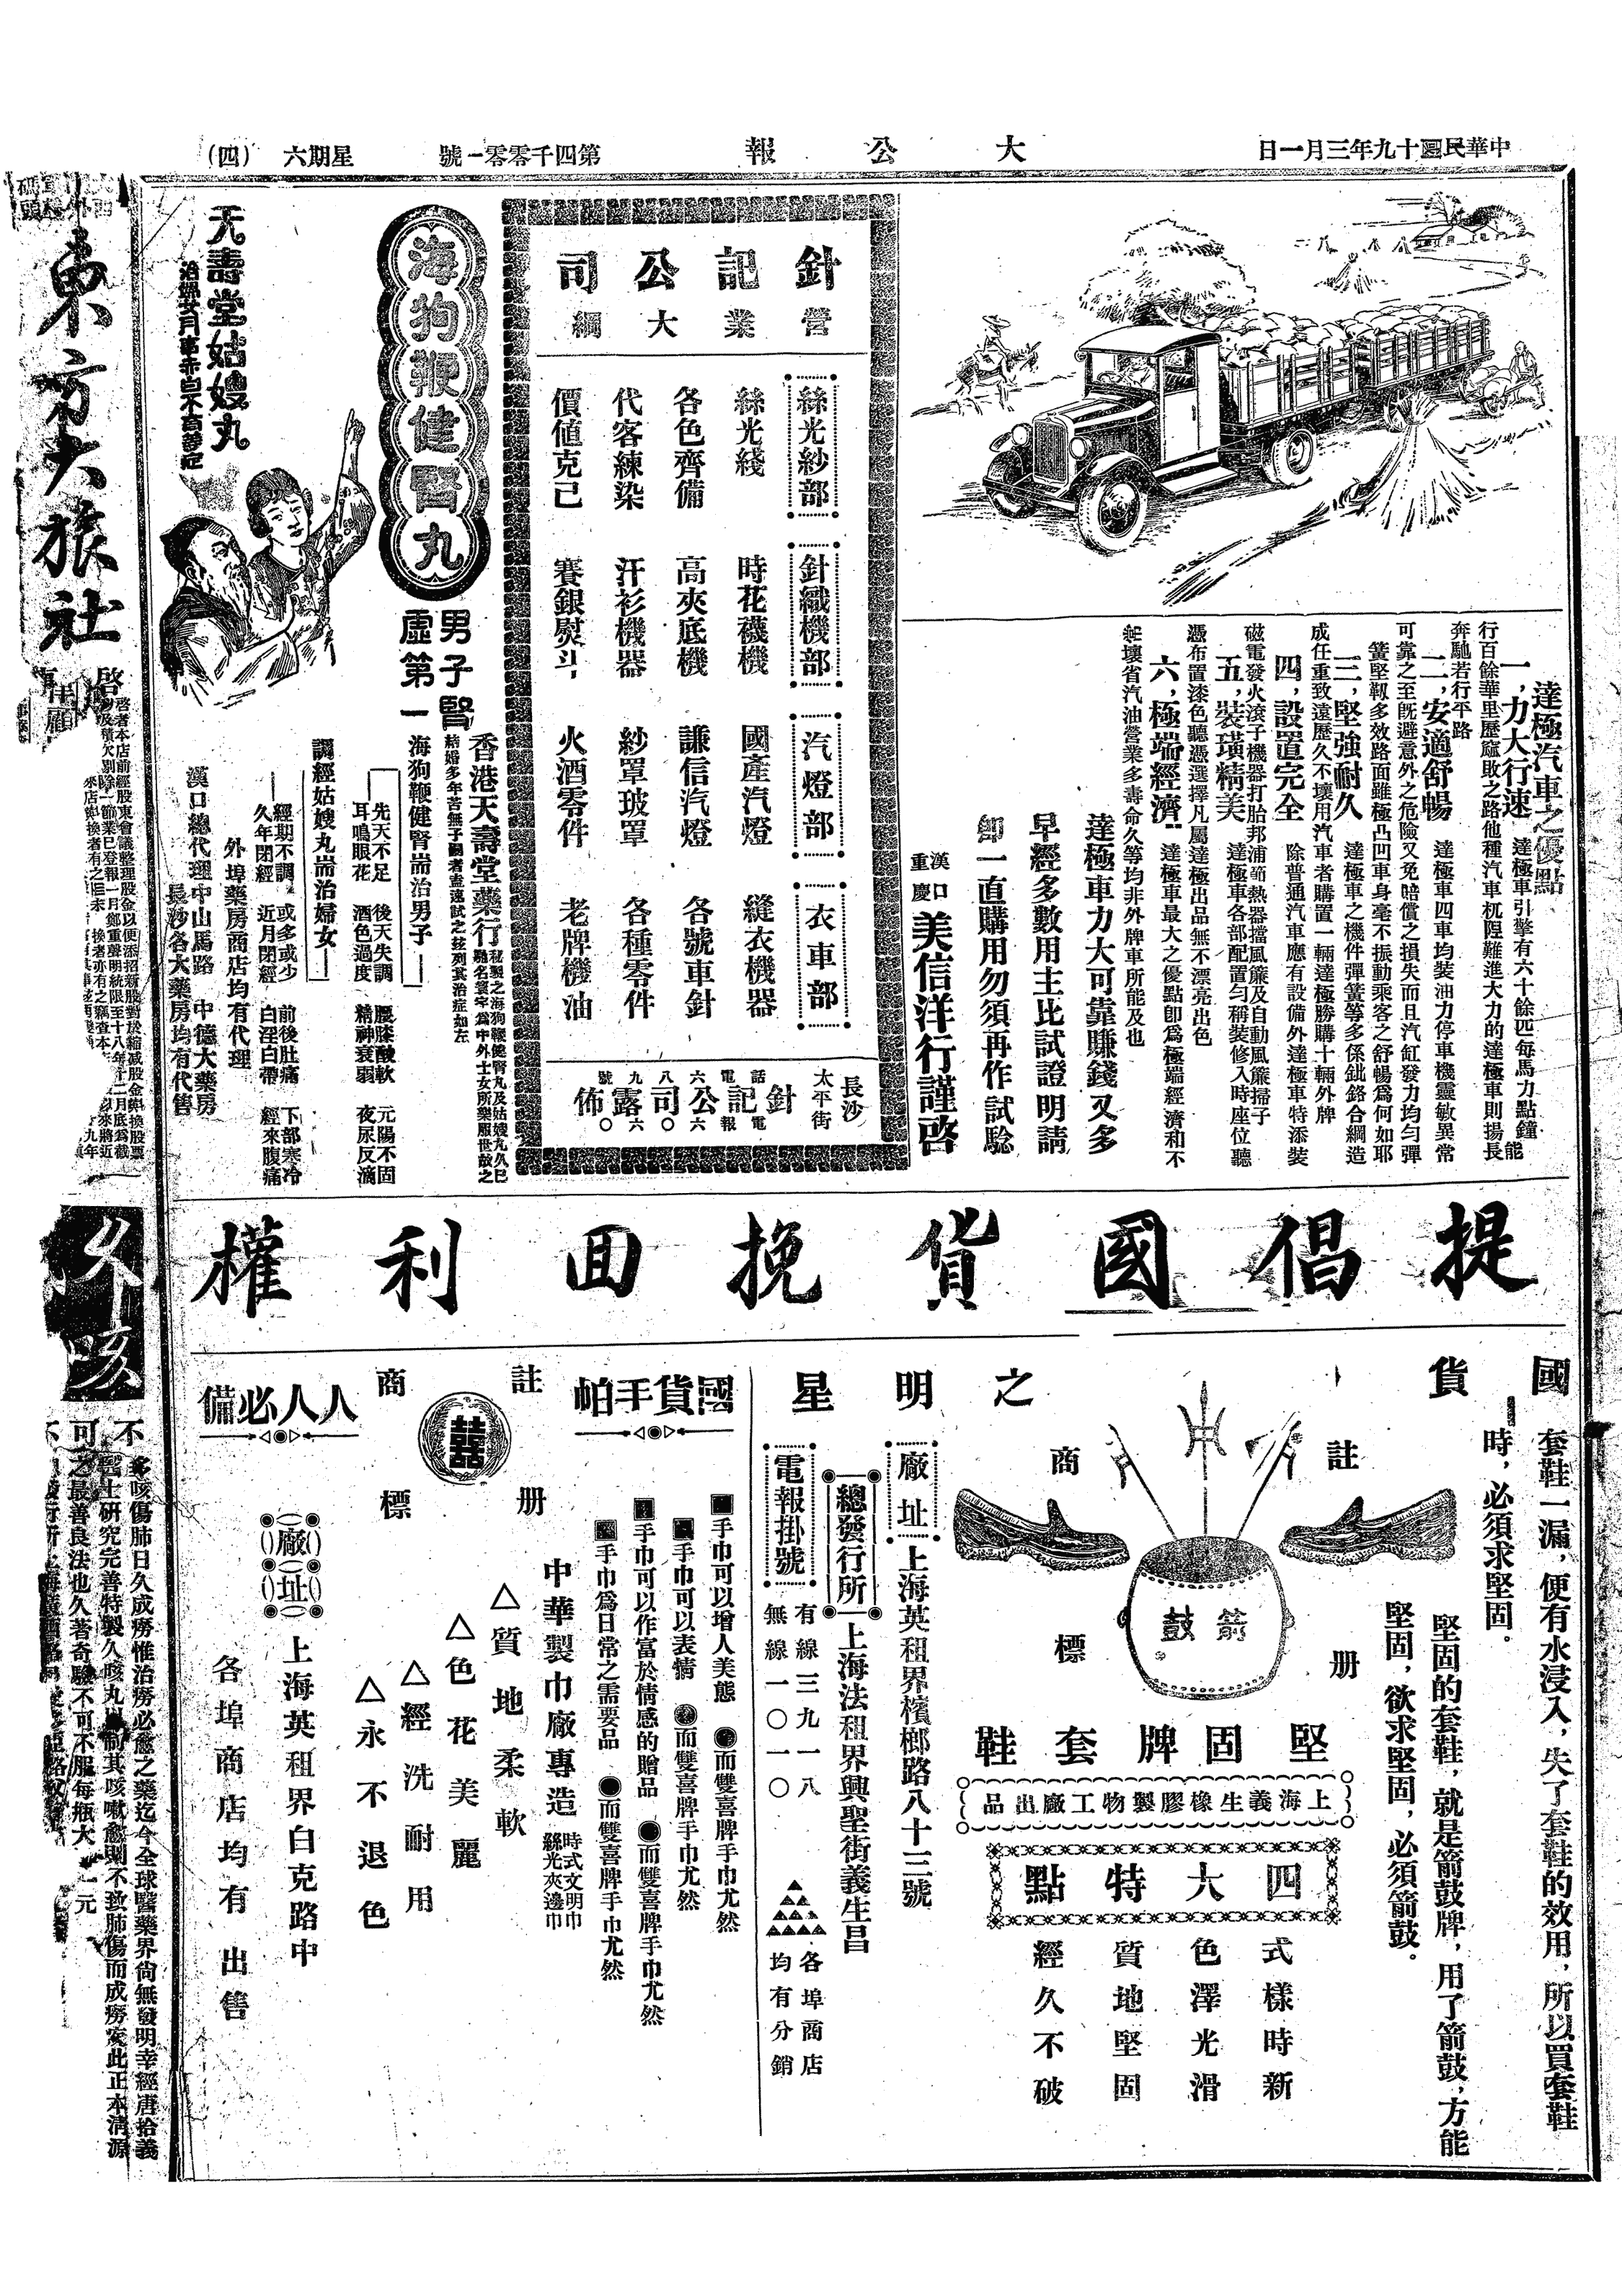 中華民國十九年三月一日
大公報
第四千零零一號
星期六
(四)
達極汽車之優點
一,力大行速 達極車引擎有六十餘匹每馬力點鐘能
行百餘華里歷窳敗之路他種汽車杌隉難進大力的達極車則揚長
奔馳若行平路
二,安適舒暢 達極車四車均裝油力停車機靈敏異常
可靠之至旣避意外之危險又免賠償之損失而且汽缸發力均勻彈
簧堅靱多效路面雖極凸凹車身毫不振動乘客之舒暢爲何如耶
三,堅強耐久 達極車之機件彈簧等多係鈋鉻合綱造
成任重致遠歷久不壞用汽車者購置一輛達極勝購十輛外牌
四,設置完全 除普通汽車應有設備外達極車特添裝
磁電發火滾子機器打胎邦浦節熱器擋風簾及自動風簾掃子
五,裝璜精美 達極車各部配置勻稱裝修入時座位聽
憑布置漆色聽憑選擇凡屬達極出品無不漂亮出色
六,極端經濟 達極車最大之優點卽爲極端經濟和不
蛇壞省汽油營業多壽命久等均非外牌車所能及也
達極車力大可靠賺錢又多
早經多數用主比試證明請
卽一直購用勿須再作試騐
漢口
重慶
美信洋行謹啓
針記公司
營業大綱
絲光紗部
絲光綫
各色齊備
代客練染
價値克己
針織機部
時花襪機
高夾底機
汗衫機器
賽銀熨斗
汽燈部
國產汽燈
謙信汽燈
紗罩玻罩
火酒零件
衣車部
縫衣機器
各號車針
各種零件
老牌機油
長沙
太平街
針記公司露佈
電話六八九號
電報六〇六〇
海狗鞭健腎丸
男子腎
虛第一
天壽堂姑嫂丸
治婦女月事赤白不育等症
香港天壽堂藥行秘製之海狗鞭健腎丸及姑嫂丸久已
馳名寰宇爲中外士女所樂服世敢之
結婚多年苦無子嗣者盍速試之玆列其治症如左
海狗鞭健腎耑治男子
先天不足 後天失調 腰膝酸軟 元陽不固
耳鳴眼花 酒色過度 精神衰弱 夜尿反滴
調經姑嫂丸耑治婦女
經期不調 或多或少 前後肚痛 下部寒冷
久年閉經 近月閉經 白淫白帶 經來腹痛
外埠藥房商店均有代理
漢口總代理中山馬路 中德大藥房
長沙各大藥房均有代售
東方大旅社
啓
啓者本店前經股東會議整理股金以便添招新股對於縮減股金與換股票
提倡國貨挽回利權
國貨之明星
套鞋一漏,便有水浸入,失了套鞋的效用,所以買套鞋
時,必須求堅固。
堅固的套鞋,就是箭鼓牌,用了箭鼓,方能
堅固,欲求堅固,必須箭鼓。
註册商標
箭鼓
堅固牌套鞋
上海義生橡膠製物工廠出品
四大特點
式樣時新
色澤光滑
質地堅固
經久不破
廠址
上海英租界檳榔路八十三號
總發行所
上海法租界興聖街義生昌
電報掛號
有線三九一八
無線一〇一〇
各埠商店
均有分銷
國貨手帕
註册商標
囍
人人必備
手巾可以增人美態 而雙喜牌手巾尤然
手巾可以表情 而雙喜牌手巾尤然
手巾可以作富於情感的贈品 而雙喜牌手巾尤然
手巾爲日常之需要品 而雙喜牌手巾尤然
中華製巾廠專造
時式文明巾
絲光夾邊巾
△質地柔軟
△色花美麗
△經洗耐用
△永不退色
廠址
上海英租界白克路中
各埠商店均有出售
久咳
不
可
多咳傷肺日久成癆惟治癆必愈之藥迄今全球醫藥界尙無發明幸經唐拾義
醫士研究完善特製久咳丸以制其咳嗽愈則不致肺傷而成癆矣此正本淸源
之最善良法也久著奇驗不可不服每瓶大 一元